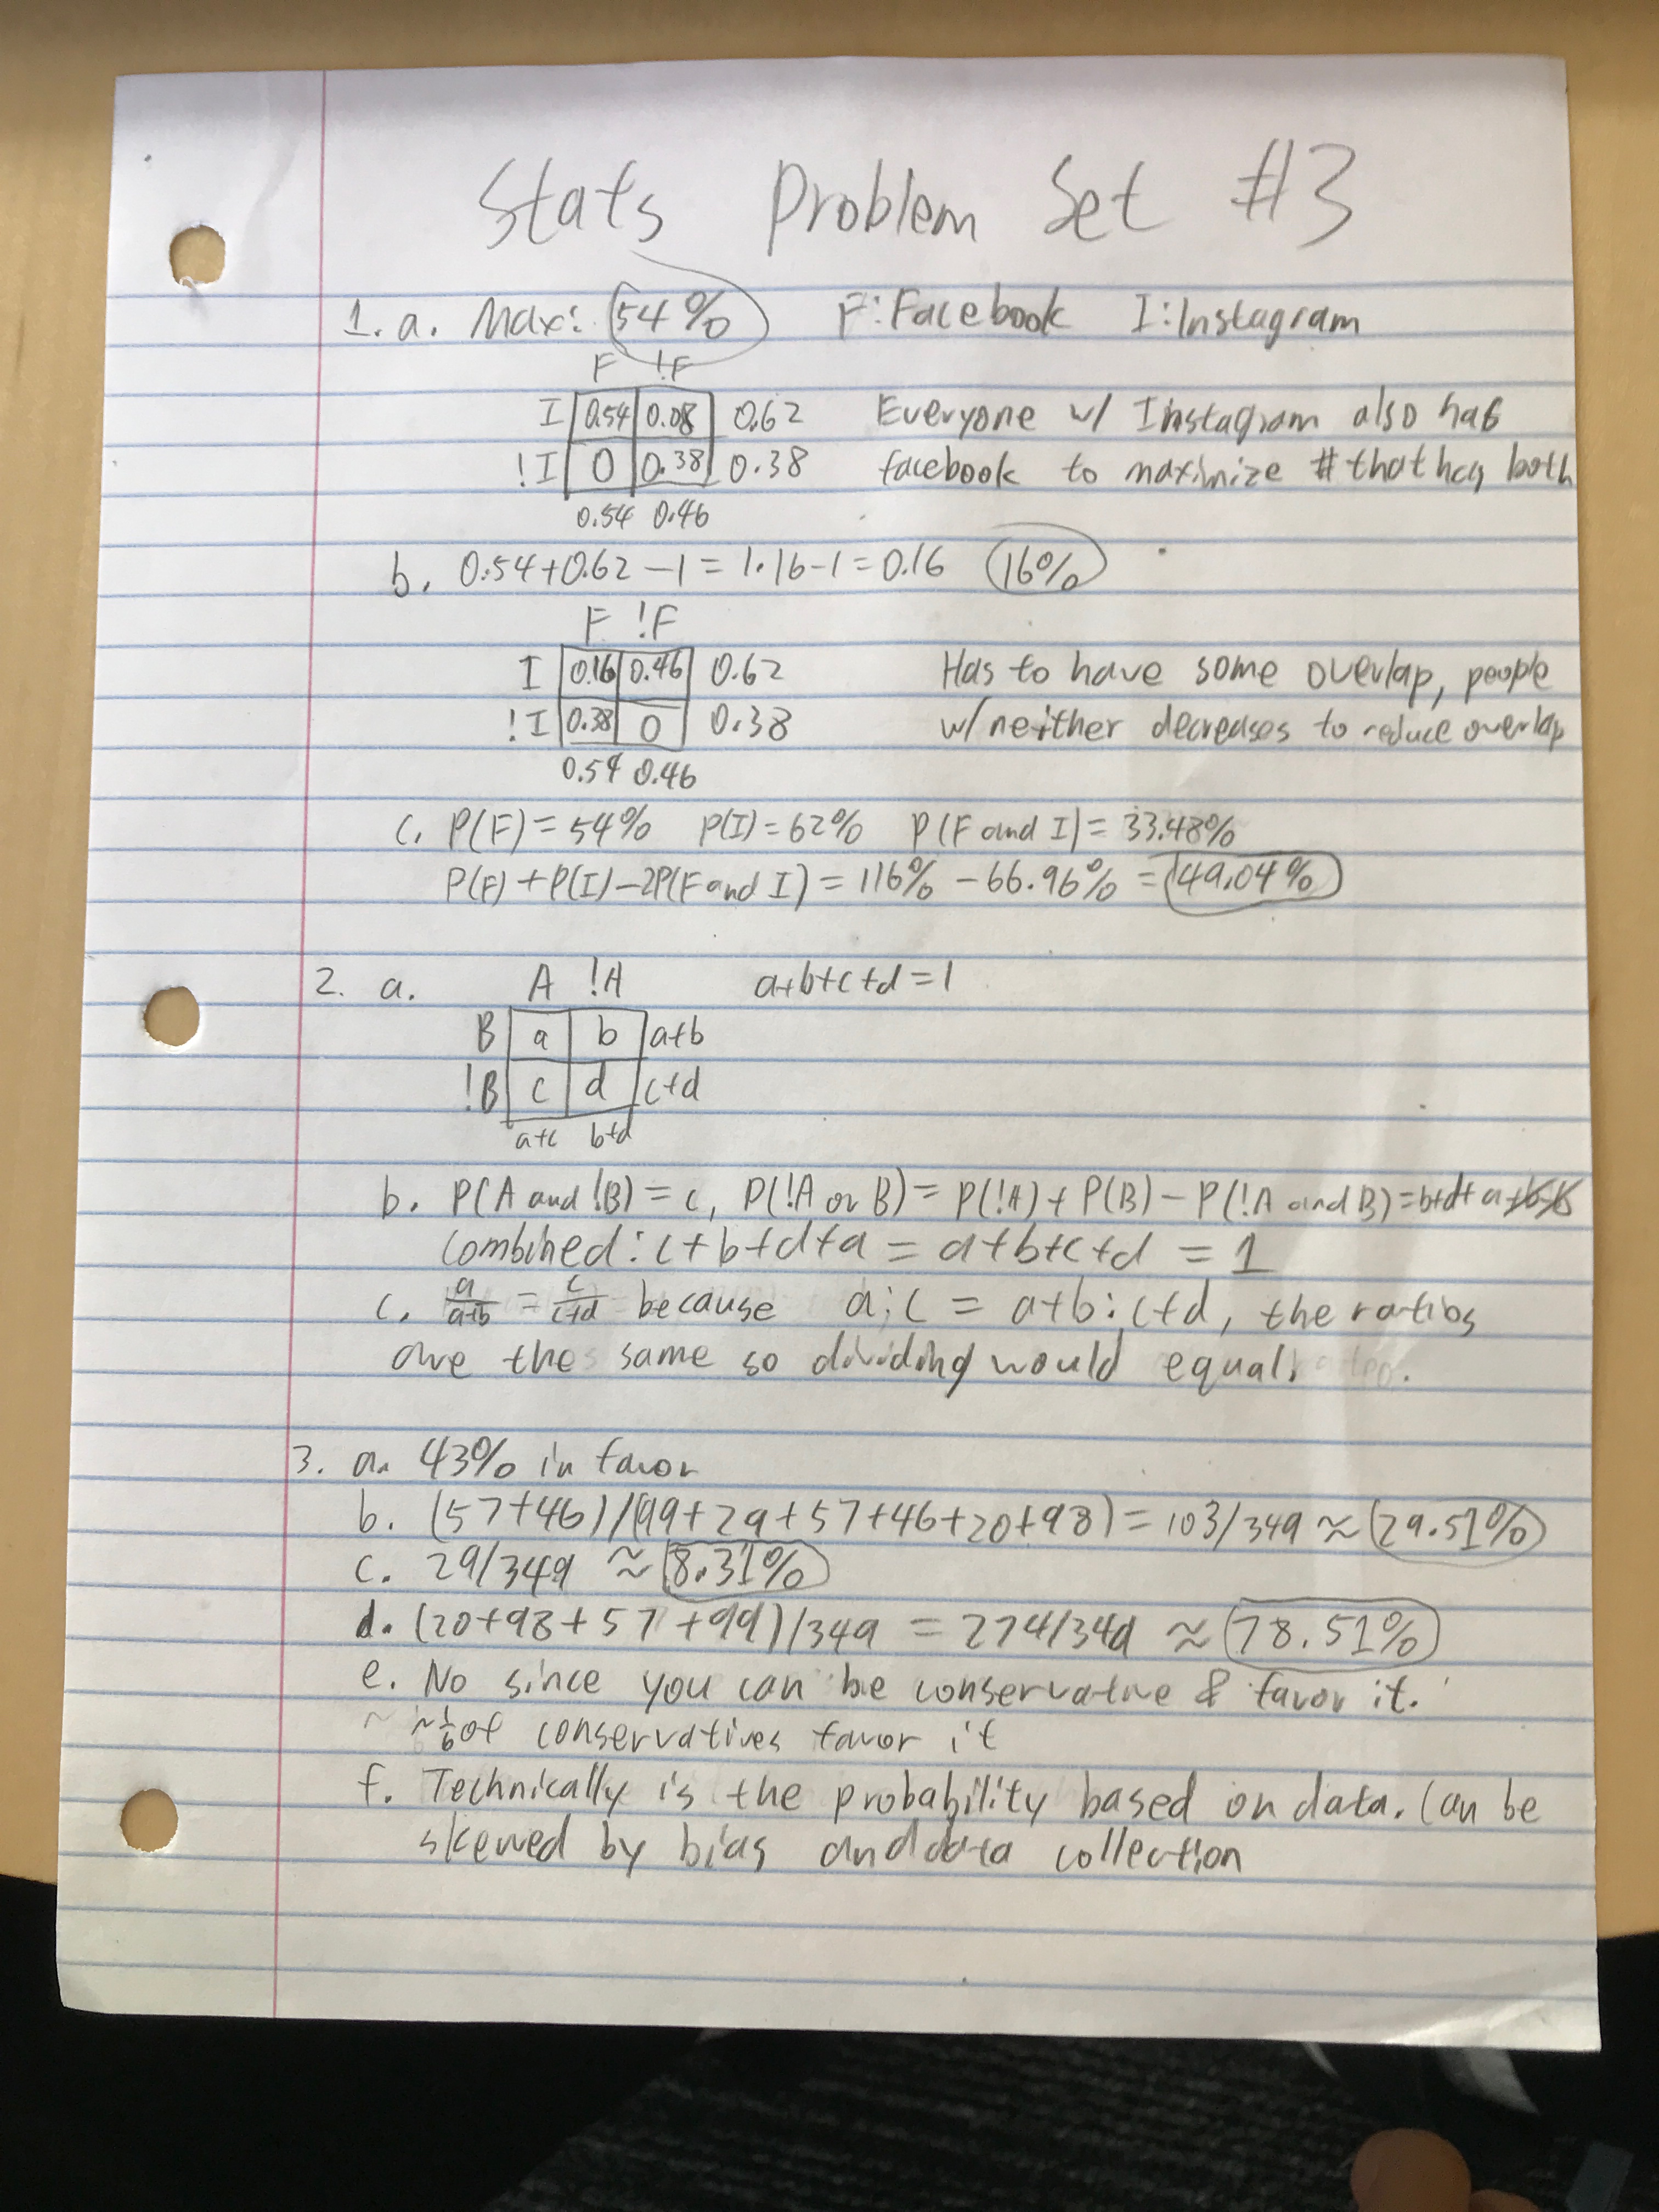 Stats Problem Set #3
1. a. Max: 54% F: Facebook I: Instagram
F !F
I 0.54 0.08 0.62 Everyone w/ Instagram also has
!I 0 0.38 0.38 facebook to maximize # that hag both
0.54 0.46
b. 0.54+0.62-1=1.16-1=0.16 16%
F !F
I 0.16 0.46 0.62 Has to have some overlap, people
!I 0.38 0 0.38 w/ neither decreases to reduce overlap
0.54 0.46
c. P(F)=54% P(I)=62% P(F and I)=33.48%
P(F)+P(I)-2P(F and I)=116%-66.96%=49.04%
2. a. A !A a+b+c+d=1
B a b a+b
!B c d c+d
a+c b+d
b. P(A and !B)=c, P(!A or B)=P(!A)+P(B)-P(!A and B)=b+d+a+b-b
Combined: c+b+d+a=a+b+c+d=1
c. a/a+b = c/c+d because a:c=a+b:c+d, the ratios
are the same so dividing would equal.
3. a. 43% in favor
b. (57+46)/(99+29+57+46+20+98)=103/349≈29.51%
c. 29/349 ≈ 8.31%
d. (20+98+57+99)/349 = 274/349 ≈ 78.51%
e. No since you can be conservative & favor it.
~1/6 of conservatives favor it
f. Technically is the probability based on data. Can be
skewed by bias and data collection